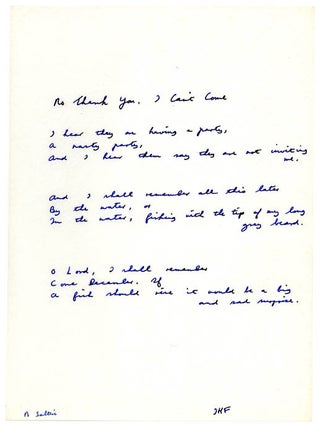 No Thank You, I Can't Come
I hear they are having a party,
A nasty party,
And I hear them say they are not inviting
me.
And I shall remember all this later
By the water, or
In the water, fishing with the tip of my long
grey beard.
O Lord, I shall remember
Come December. If
A fish should rise it would be a big
and sad surprise.
JKF